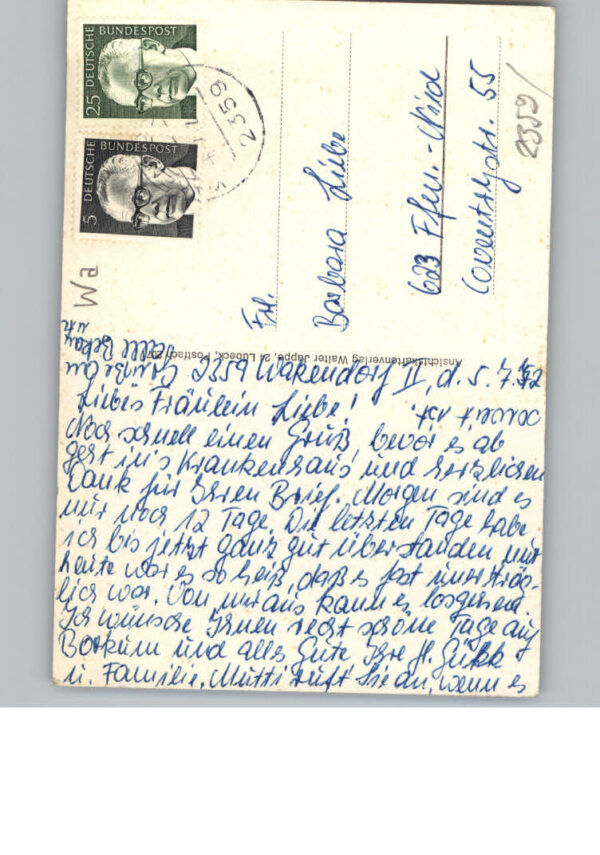 DEUTSCHE BUNDESPOST
25
DEUTSCHE BUNDESPOST
5
2359
2359/
Wa
Frl.
Barbara Liebe
623 Ffm.-Nied
Coventrystr. 55
Ansichtskartenverlag Walter Jappe, 24 Lübeck, Postfach 207
2359 Wakendorf II, d. 5. 7. 72
Liebes Fräulein Liebe!
Noch schnell einen Gruß, bevor es ab
geht in's Krankenhaus und herzlichen
Dank für Ihren Brief. Morgen sind es
nur noch 12 Tage. Die letzten Tage habe
ich bis jetzt ganz gut überstanden nur
heute war es so heiß, daß es fast unerträg-
lich war. Von mir aus kann es losgehen.
Ich wünsche Ihnen recht schöne Tage auf
Borkum und alles Gute Ihre H.
u. Familie. Mutti ruft Sie an, wenn es